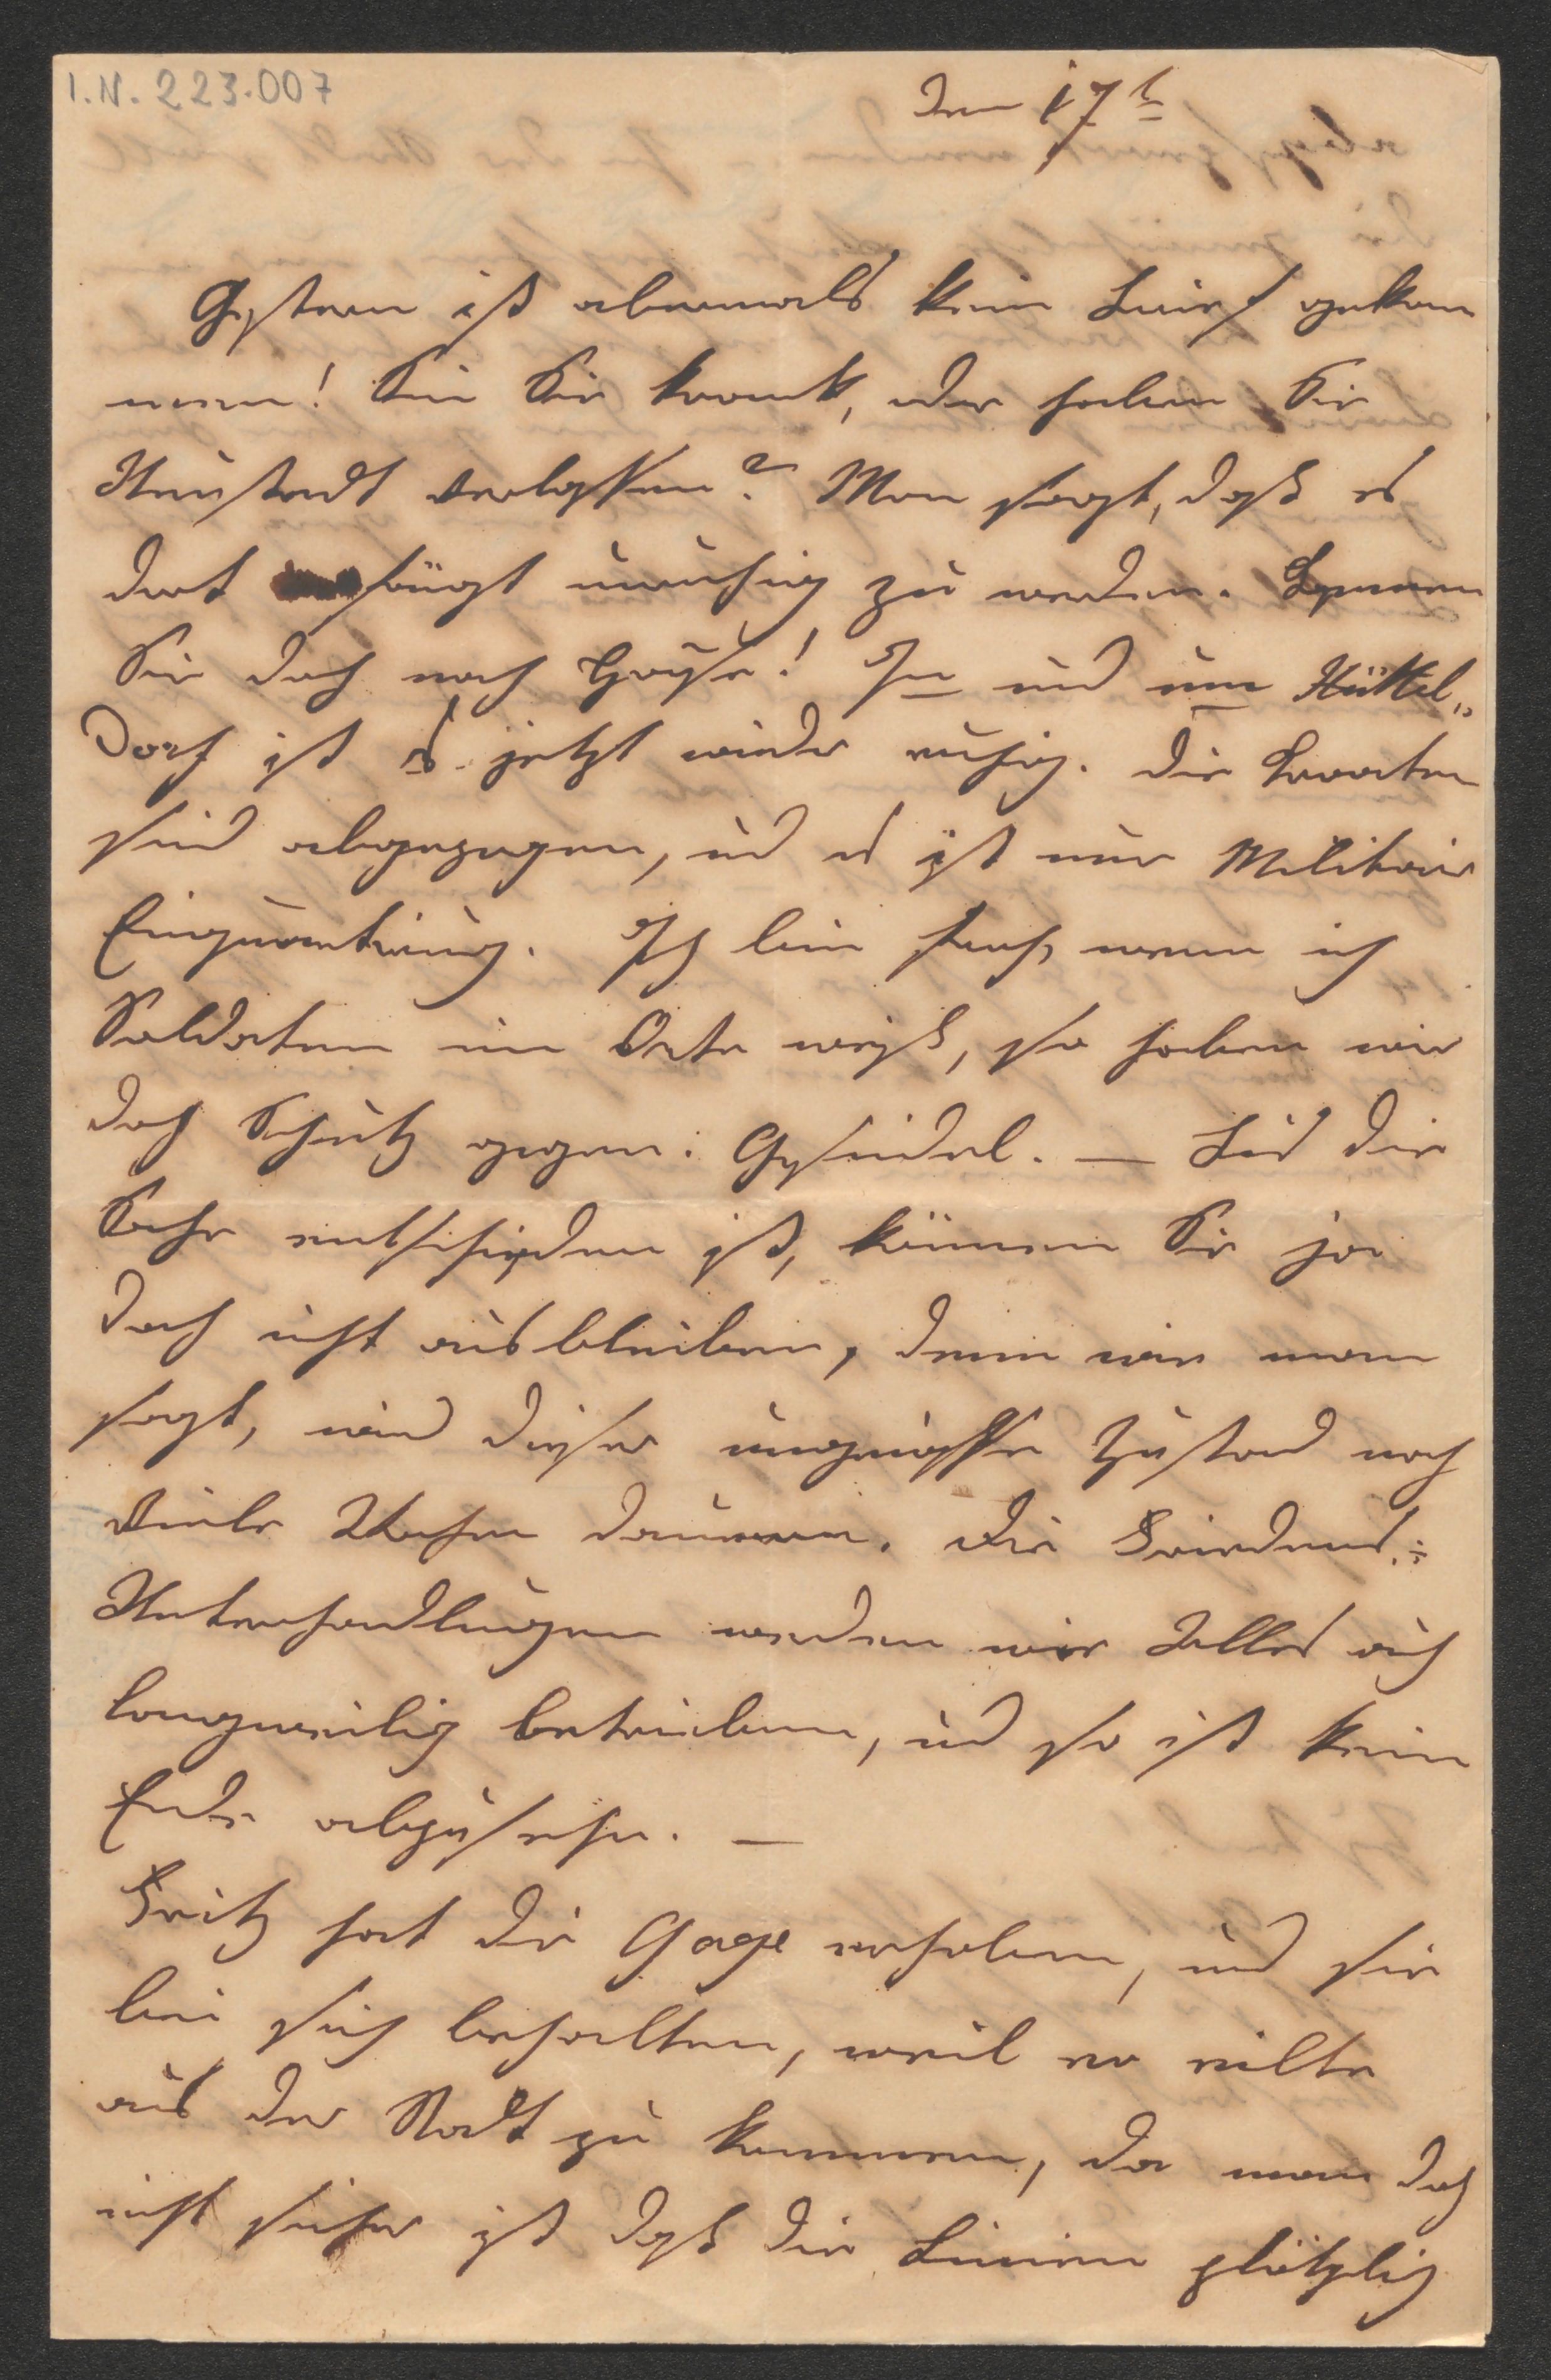 I.N. 223.007
Den 17t
Gestern ist abermals kein Brief gekom
men! Sin Sie krank, oder haben Sie
Neustadt verlassen? Man sagt, daß es
dort anfängt unruhig zu werden. Kommen
Sie doch nach Hause! In und um Hüttel„
dorf ist es jetzt wieder ruhig. Die Kroaten
sind abgezogen, und es ist nur Militair
Einquartirung. Ich bin froh, wenn ich
Soldaten im Orte weiß, so haben wir
doch Schutz gegen: Gesindel. — Bis die
Sache entschieden ist, können Sie ja
doch nicht ausbleiben, denn wie man
sagt, wird dieser ungewisse Zustand noch
viele Wochen dauern. Die Friedens.:
Unterhandlungen werden wie Alles auch
langweilig betrieben, und so ist kein
Ende abzusehen. —
Fritz hat die Gage erhoben, und sie
bei sich behalten, weil er eilte
aus der Stadt zu kommen, da man doch
nicht sicher ist daß die Linien plötzlich